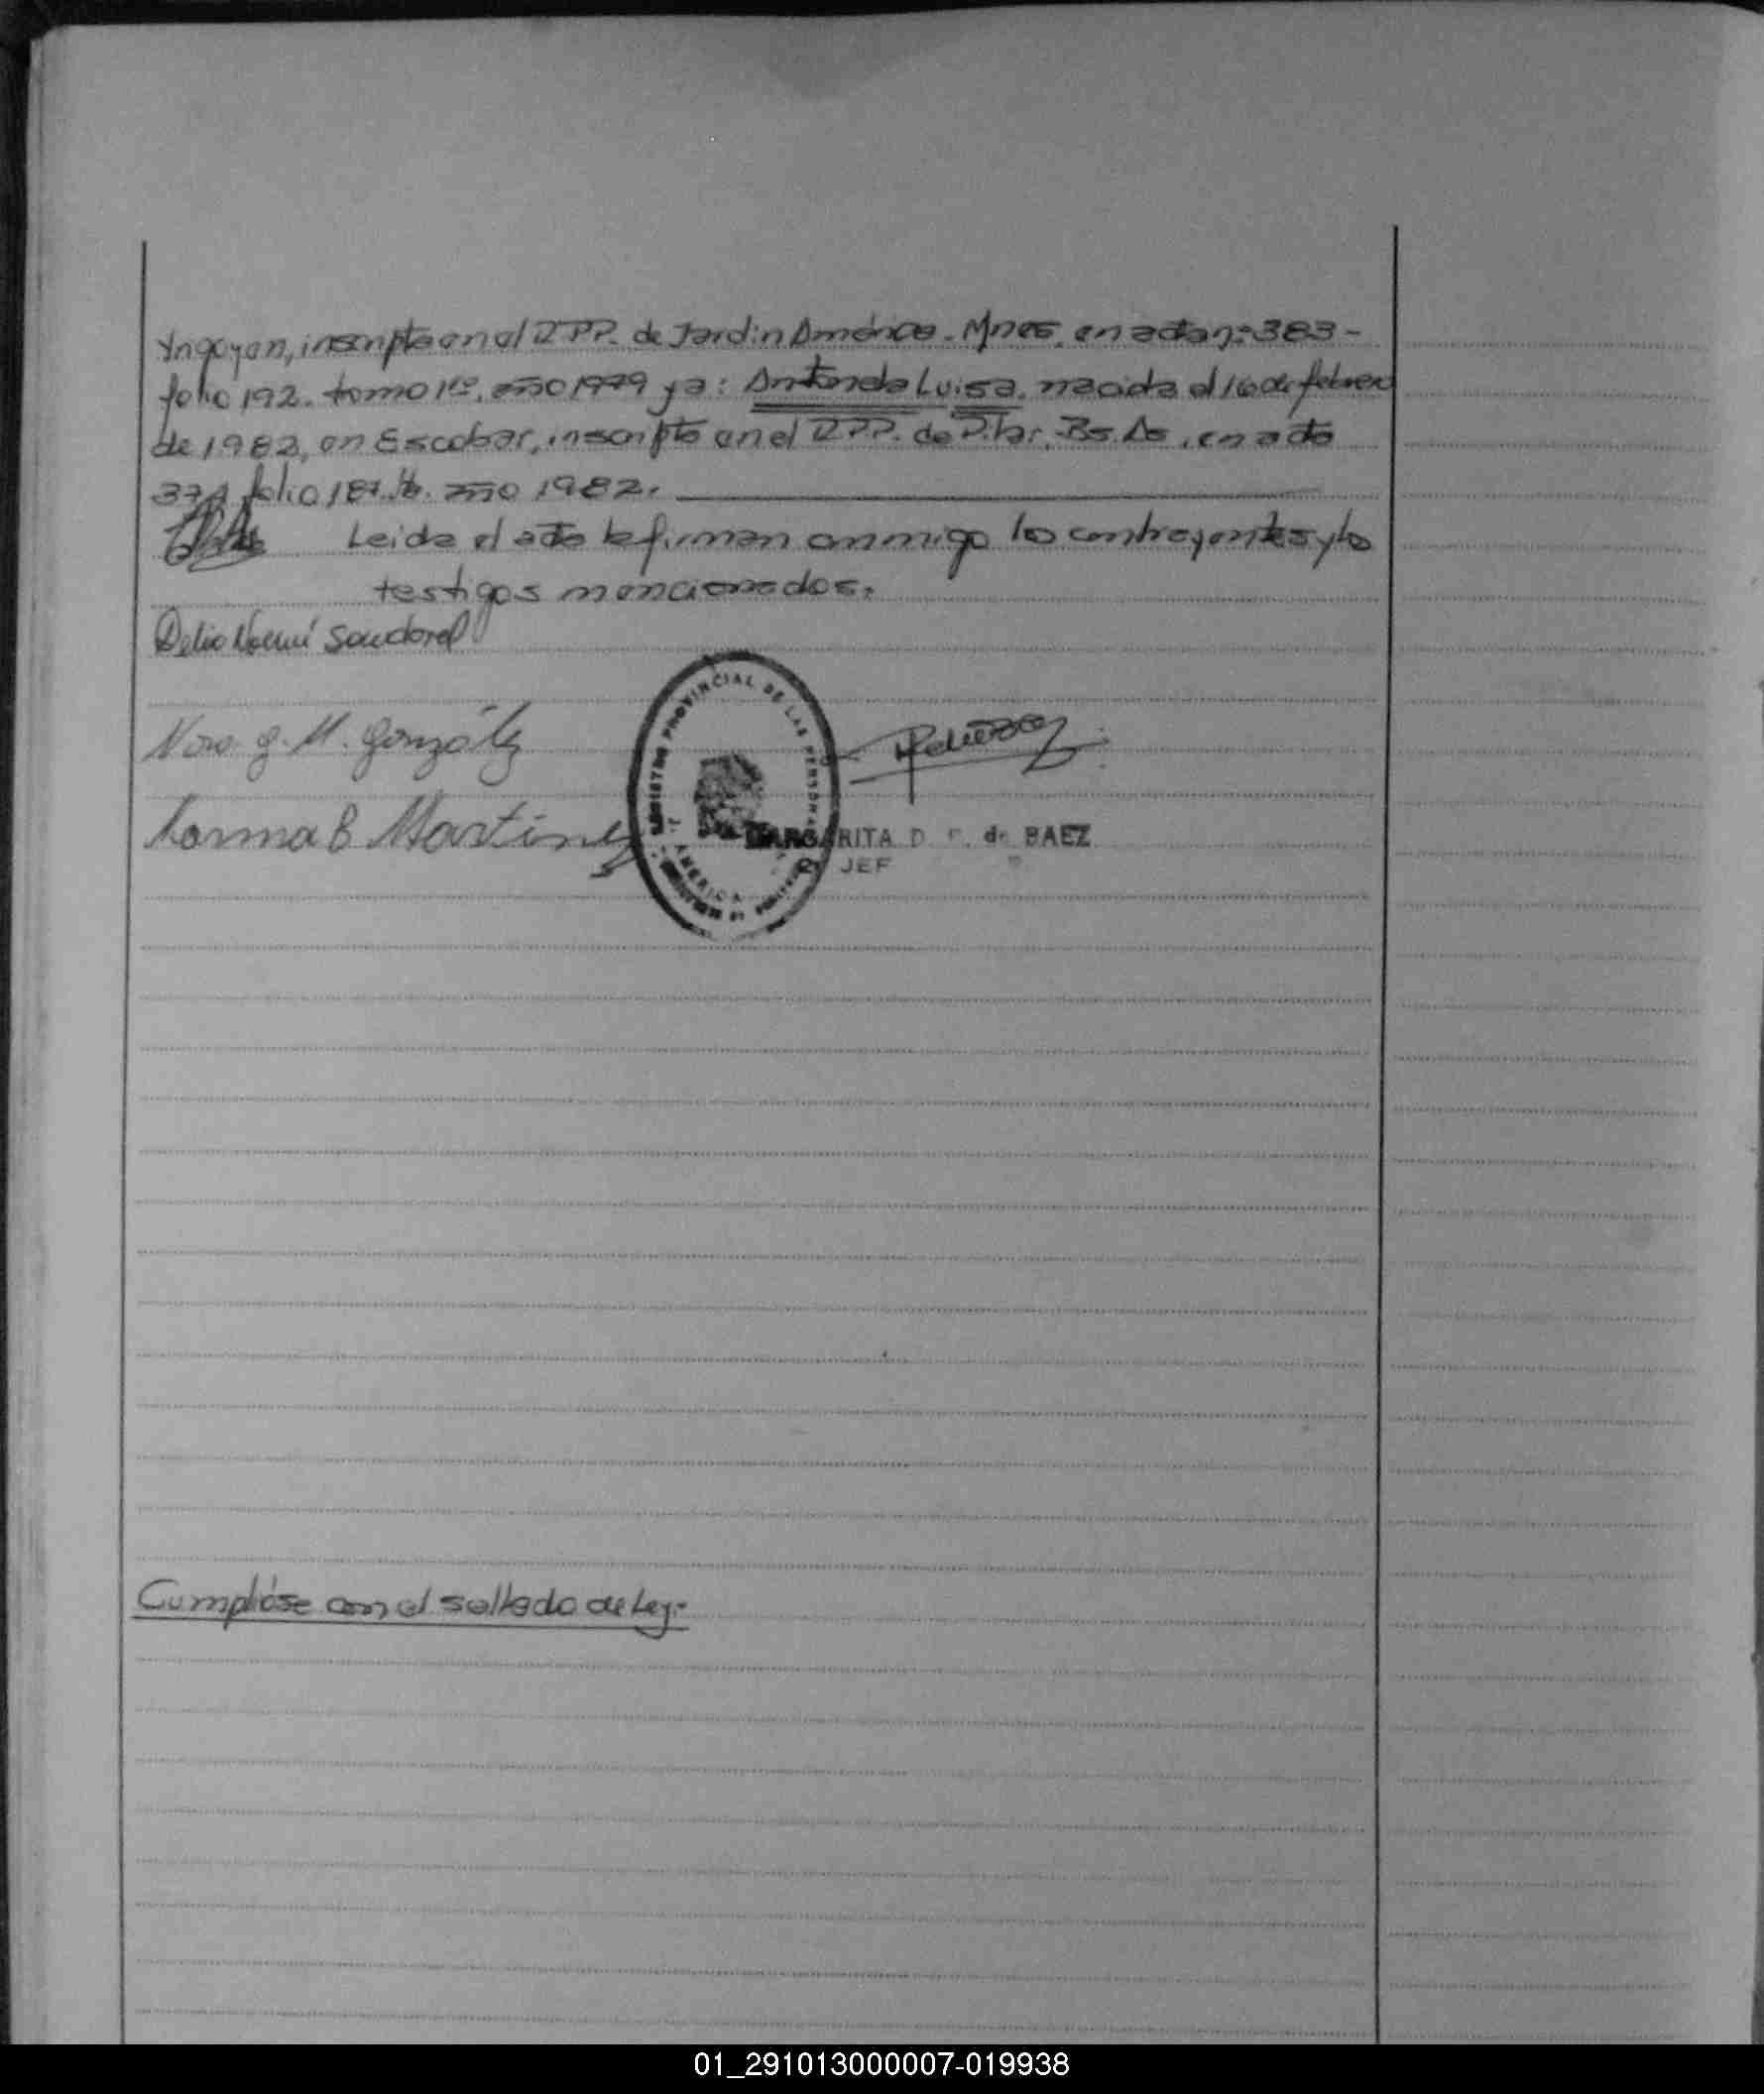 Yrigoyen, inscripta en el R.P.P. de Jardin América - Mnes. en acta nº 383-
folio 192. tomo 1ro. año 1979 y a: Antonela Luisa, nacida el 16 de febrero
de 1982, en Escobar, inscripta en el R.P.P. de Pilar, Bs. As., en acta
folio 187. año 1982.
Leida el acta la firman conmigo los contrayentes y los
testigos mencionados.
Delia Noemí Sandoval
G. M. González
Norma B Martinez
REGISTRO PROVINCIAL DE LAS PERSONAS
AMERICA
MARGARITA D de BAEZ
JEF
Cumplióse con el sellado de Ley.-
01_291013000007-019938